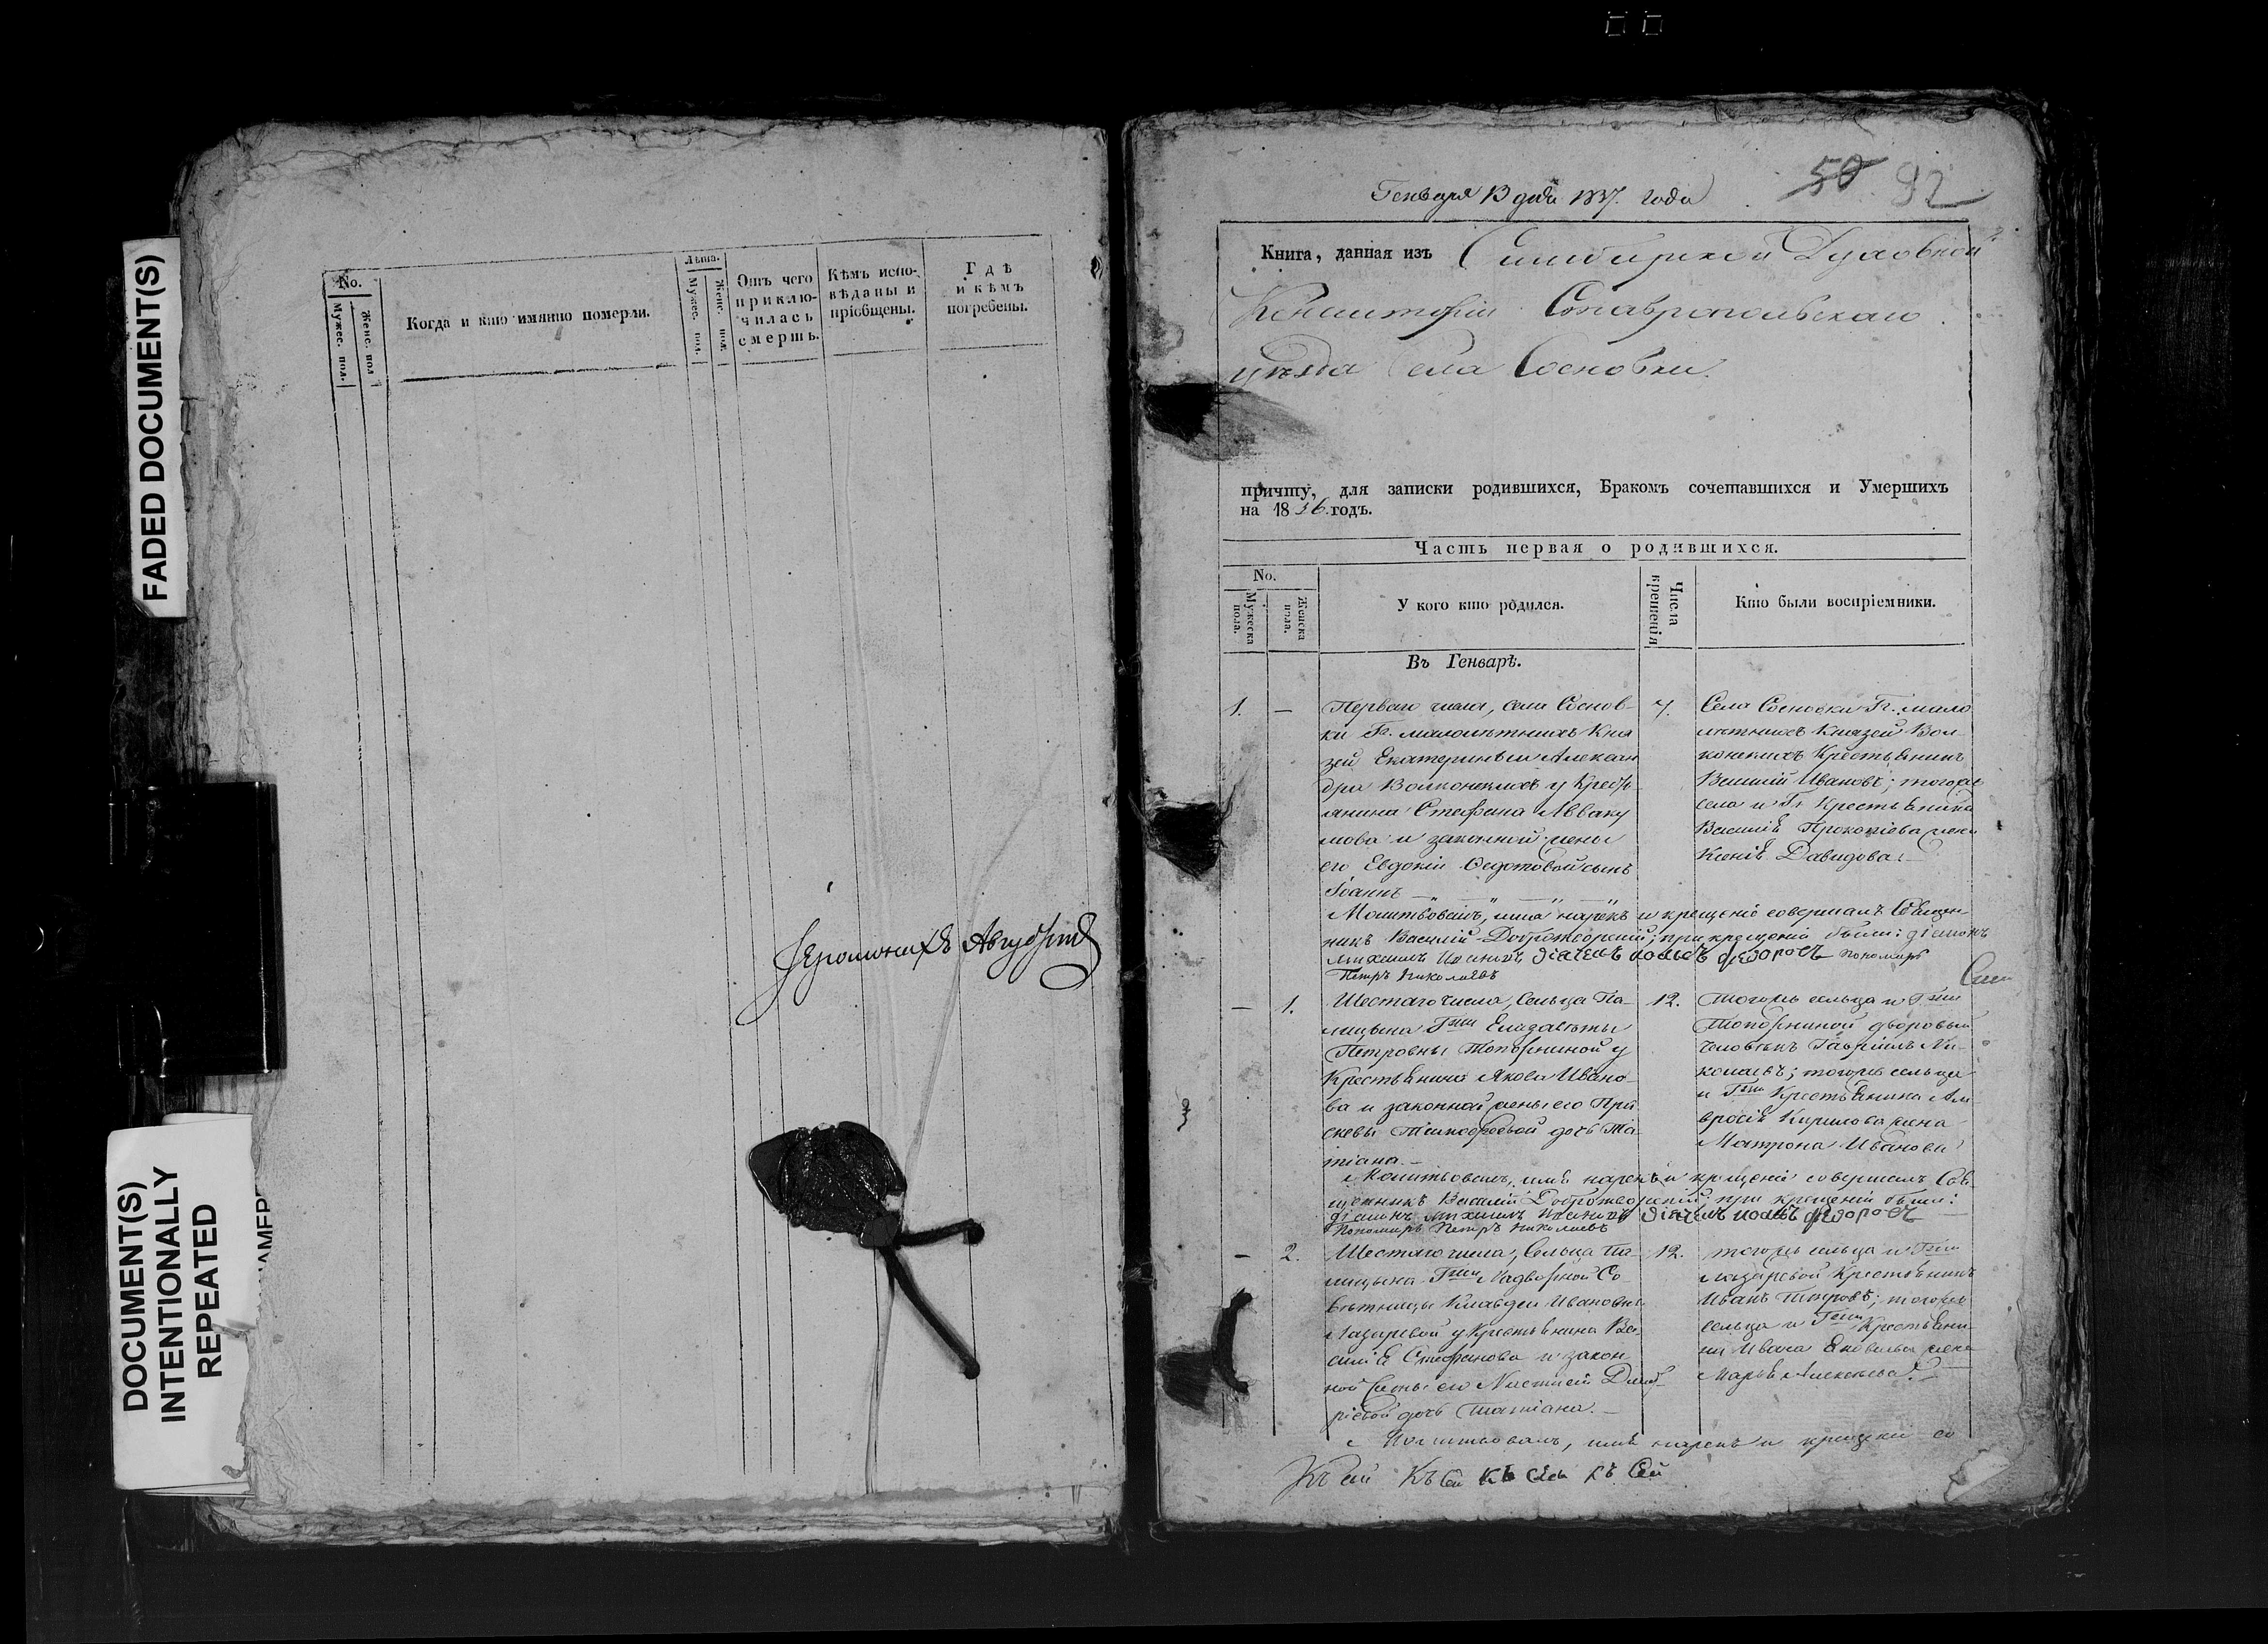 FADED DOCUMENT(S)
DOCUMENT(S)
INTENTIONALLY
REPEATED
No.
Мужес. пол.
Женс. пол
Когда и кто имянно померли.
Лѣта.
Мужес. пол.
Женс. пол.
Отъ чего
приклю-
чилась
смерть.
Кѣмъ испо-
вѣданы и
пріобщены.
Гдѣ
и кѣмъ
погребены.
Іеромонахъ
Генваря 13 дня 1837. года
50 92
Книга, данная изъ Симбирской Духовной
Консисторіи Ставропольскаго
уѣзда Села Сосновки.
причту, для записки родившихся, Бракомъ сочетавшихся и Умершихъ
на 1836. годъ.
Часть первая о родившихся.
No.
Мужеска пола.
Женска пола.
У кого кто родился.
Числа крещенія
Кто были воспріемники.
Въ Генварѣ.
1. —
Перваго числа, села Соснов-
ки Гг. малолѣтныхъ Кня
зей Екатерины и Алексан
дра Волконскихъ у Кресть-
янина Стефана Авваку
мова и законной жены
его Евдокіи Ѳедотовой сынъ
Іоаннъ —
7.
Села Сосновки Гг. мало
лѣтныхъ Князей Вол-
конскихъ Крестьянинъ
Василій Ивановъ; тогоже
села и Гг. Крестьянина
Василія Прокопіева жена
Ксенія Давидова. —
Молитвовалъ, имя нарекъ и крещеніе совершалъ Священ-
никъ Василій Добротворскій; при крещеніи были: діаконъ
Михаилъ дьячекъ федоровъ пономарь
Петръ Николаевъ
— 1.
Шестаго числа, Сельца Па-
лицына Гжи Елизаветы
Петровны Топорниной у
Крестьянина Якова Ивано-
ва и законной жены его Пра
скевы Тимофеевой дочь Та-
тіана. —
12.
Тогожь сельца и Гжи
Топорниной дворовый
человѣкъ Гавріилъ Ни-
колаевъ; тогожь сельца
и Гжи Крестьянина Ам
вросія Кирилова жена
Матрона Иванова
Молитвовалъ, имя нарекъ и крещеніе совершалъ Свя-
щенникъ Василій Добротворскій при крещеніи были:
діаконъ Михаилъ дьячекъ федоровъ
Пономарь Петръ Николаевъ
— 2.
Шестаго числа, Сельца Па-
лицына Гжи Надворной Со-
вѣтницы Клавдеи Ивановны
Лазаревой у Крестьянина Ва-
силія Стефанова и закон
ной жены его Дмит-
ріевой дочь Татіана. —
12.
Тогожь сельца и Гжи
Лазаревой Крестьянинъ
Иванъ Петровъ; тогожь
сельца и Гжи Крестьяни-
на Ивана Яковлева жена
Марья Алексеева. —
Молитвовалъ, имя нарекъ и крещеніе со
Къ сей Къ сей Къ сей Къ сей